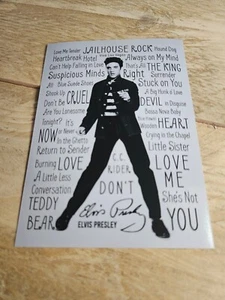 Love Me Tender JAILHOUSE ROCK Hound Dog
Viva Las Vegas
Heartbreak Hotel Always on My Mind
Can't Help Falling in Love That's All THE KING
Suspicious Minds Right Surrender
Blue Suede Shoes Stuck on You
Shook Up A Big Hunk O' Love
Don't Be CRUEL DEVIL in Disguise
Are You Lonesome Bossa Nova Baby
Tonight? Wooden HEART
It's NOW Crying in the Chapel
or Never
In the Ghetto Little Sister
Return to Sender
Burning LOVE C.C. RIDER LOVE ME
A Little Less DON'T
Conversation She's Not
TEDDY BEAR YOU
Elvis Presley
ELVIS PRESLEY